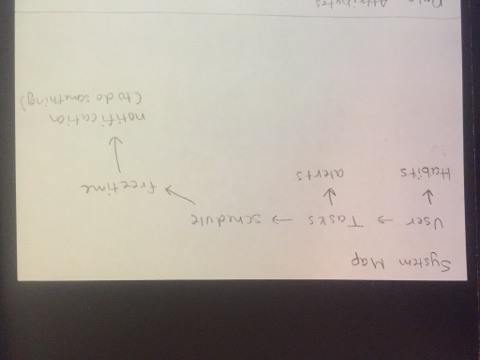 System Map
User → Tasks → schedule
freetime
Habits alerts
notification
(to do something)
Data Attributes